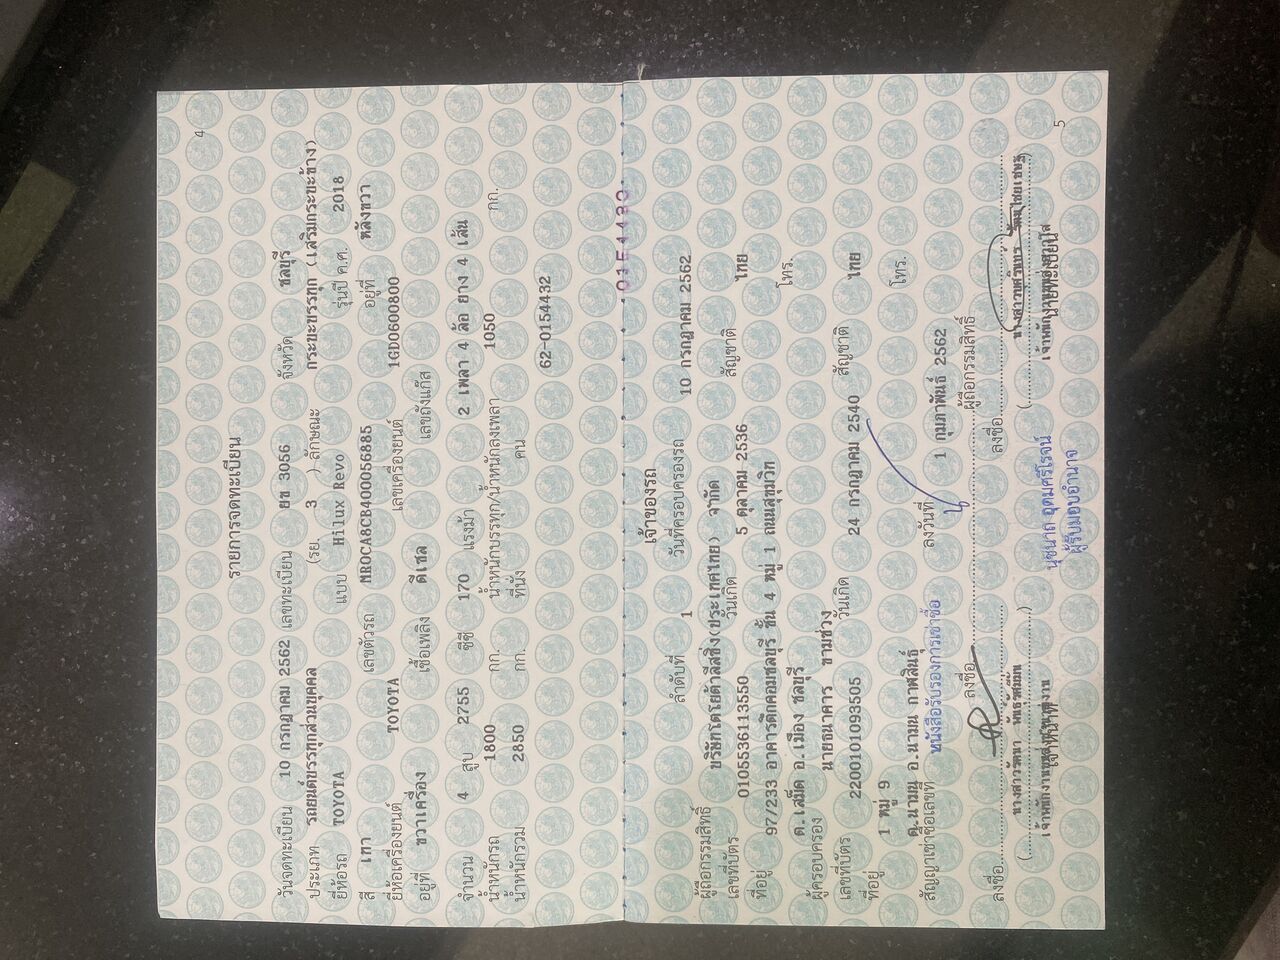 4
รายการจดทะเบียน
วันจดทะเบียน 10 กรกฎาคม 2562 เลขทะเบียน ยช 3056 จังหวัด ชลบุรี
ประเภท รถยนต์บรรทุกส่วนบุคคล (รย. 3 ) ลักษณะ กระบะบรรทุก (เสริมกระบะข้าง)
ยี่ห้อรถ TOYOTA แบบ Hilux Revo รุ่นปี ค.ศ. 2018
สี เทา เลขตัวรถ MR0CA8CB400056885 อยู่ที่ หลังขวา
ยี่ห้อเครื่องยนต์ TOYOTA เลขเครื่องยนต์ 1GD0600800
อยู่ที่ ขวาเครื่อง เชื้อเพลิง ดีเซล เลขถังแก๊ส
จำนวน 4 สูบ 2755 ซีซี 170 แรงม้า 2 เพลา 4 ล้อ ยาง 4 เส้น
น้ำหนักรถ 1800 กก. น้ำหนักบรรทุก/น้ำหนักลงเพลา 1050 กก.
น้ำหนักรวม 2850 กก. ที่นั่ง คน
62-0154432
เจ้าของรถ
ลำดับที่ 1 วันที่ครอบครองรถ 10 กรกฎาคม 2562
ผู้ถือกรรมสิทธิ์ บริษัทโตโยต้าลีสซิ่ง(ประเทศไทย) จำกัด
เลขที่บัตร 0105536113550 วันเกิด 5 ตุลาคม 2536 สัญชาติ ไทย
ที่อยู่ 97/233 อาคารดีกคอมชลบุรี ชั้น 4 หมู่ 1 ถนนสุขุมวิท โทร.
ต.เสม็ด อ.เมือง ชลบุรี
ผู้ครอบครอง นายธนาคาร ขามช่วง
เลขที่บัตร 2200101093505 วันเกิด 24 กรกฎาคม 2540 สัญชาติ ไทย
ที่อยู่ 1 หมู่ 9 โทร.
ต.นามน อ.นามน กาฬสินธุ์
สัญญาเช่าซื้อเลขที่ หนังสือรับรองการเช่าซื้อ ลงวันที่ 1 กุมภาพันธ์ 2562
ลงชื่อ ผู้ถือกรรมสิทธิ์
ลงชื่อ ลงชื่อ
นุชนาถ อุดมศรีโรจน์
ผู้รับมอบอำนาจ
เจ้าหน้าที่ นายทะเบียน
5